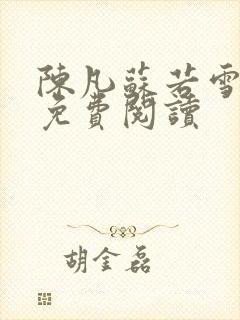 陳凡蘇若雪
免費閱讀
胡金磊